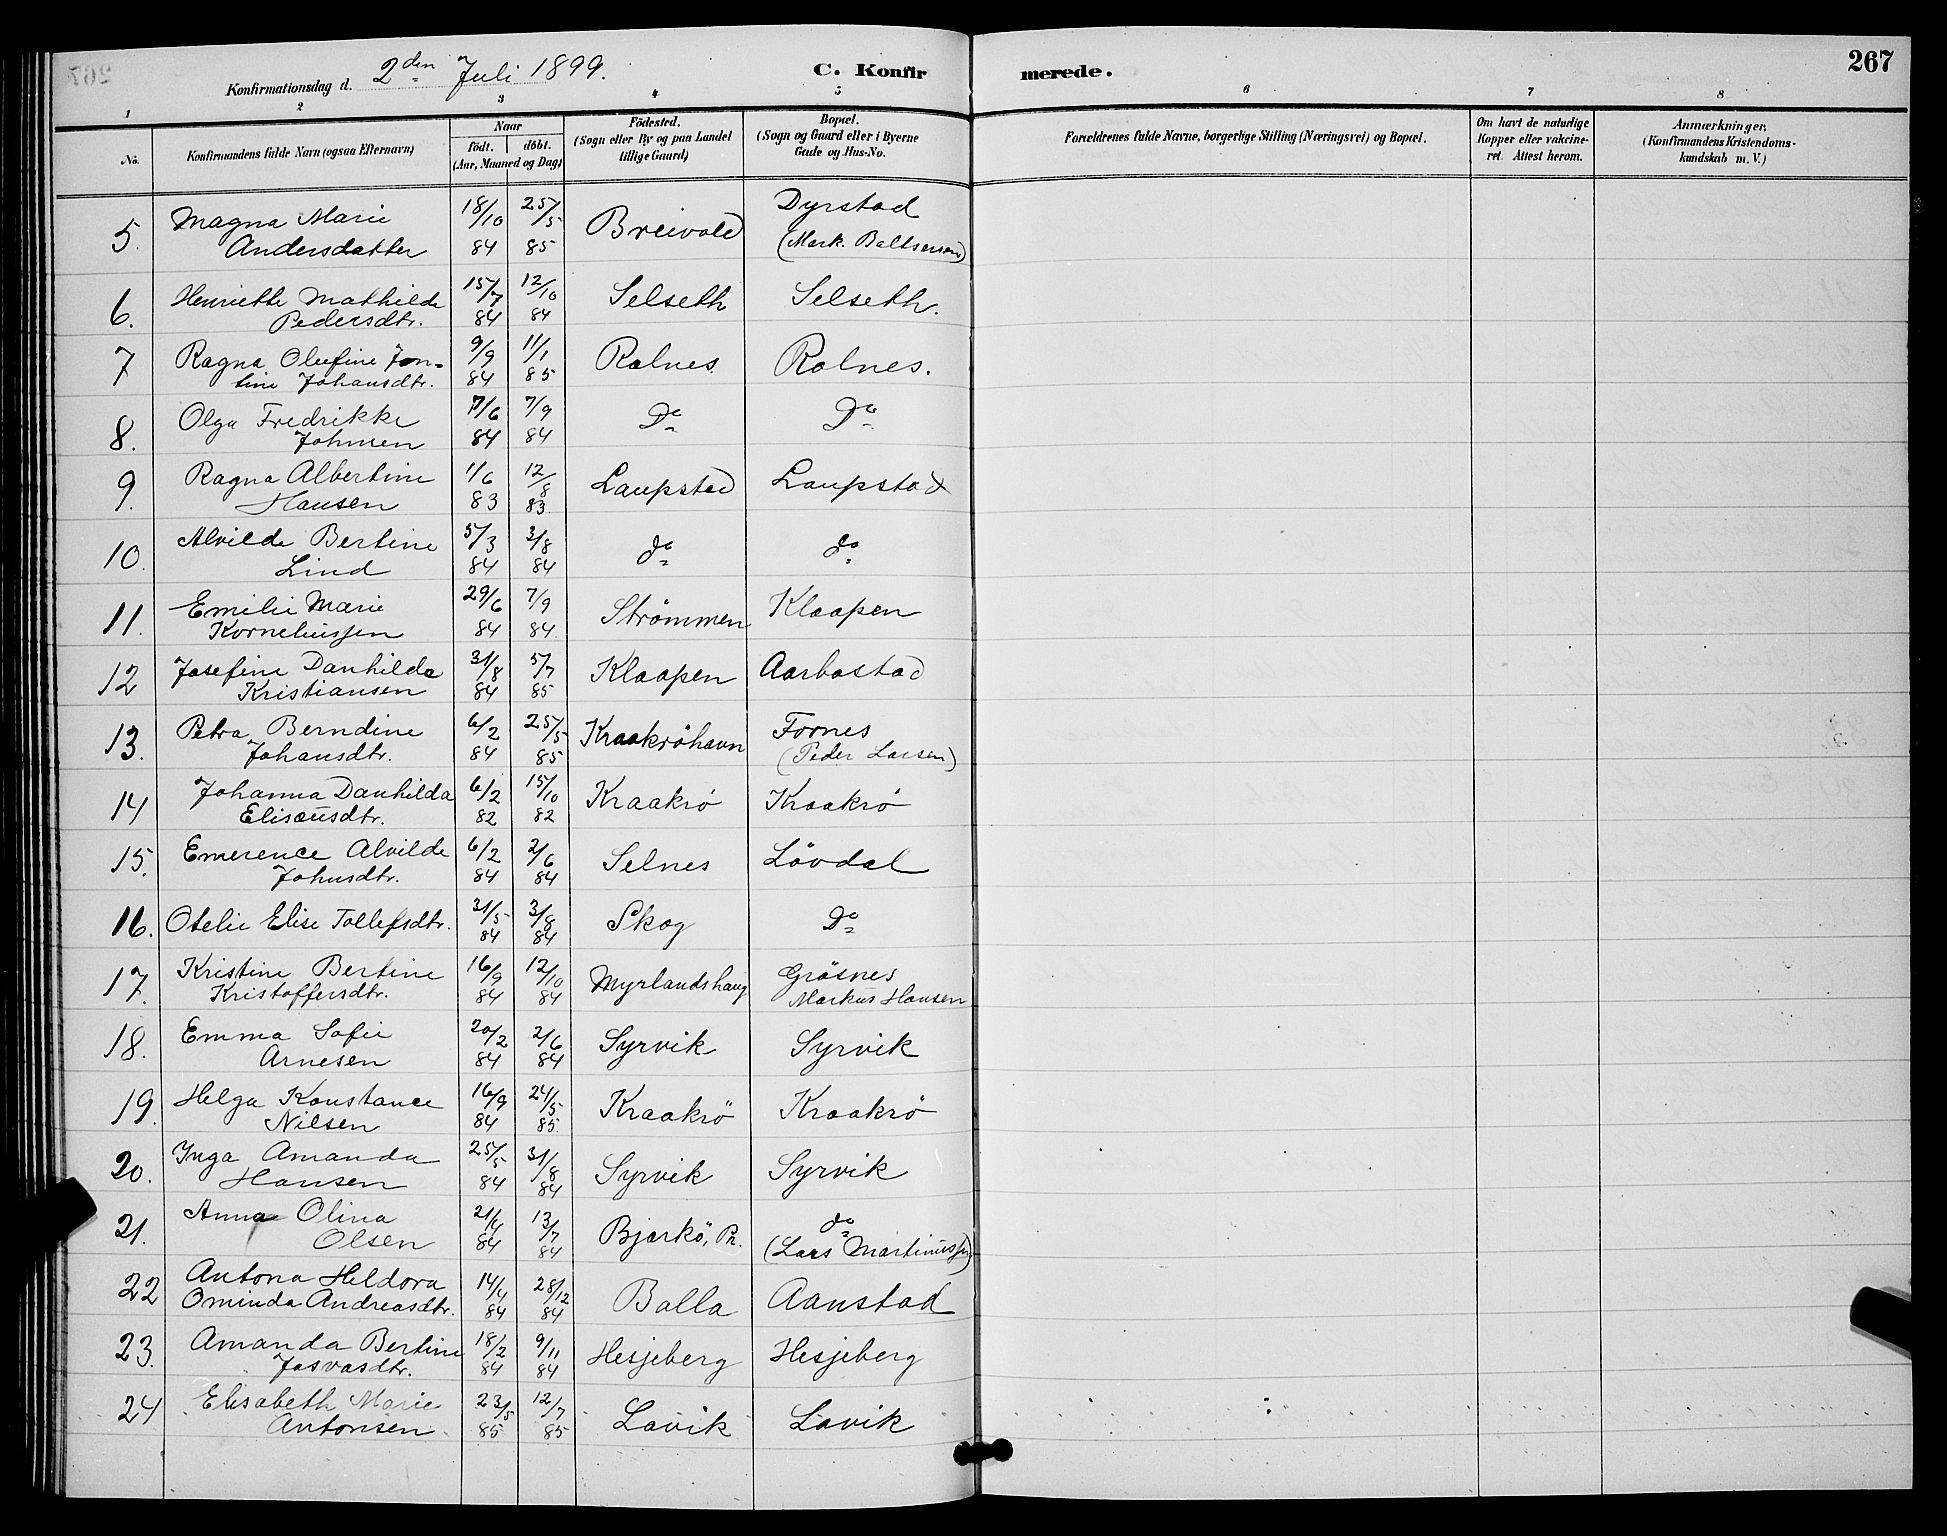 267
Konfirmationsdag d. 2den Juli 1899.
C. Konfirmerede.
1 2 3 4 5 6 7 8
No.
Konfirmandens fulde Navn (ogsaa Efternavn)
Naar
födt. döbt.
(Aar, Maaned og Dag)
Födested.
(Sogn eller By og paa Landet
tillige Gaard)
Bopæl.
(Sogn og Gaard eller i Byerne
Gade og Hus-No.
Forældrenes fulde Navne, borgerlige Stilling (Næringsvei) og Bopæl.
Om havt de naturlige
Kopper eller vakcine-
ret. Attest herom.
Anmærkninger.
(Konfirmandens Kristendoms-
kundskab m. V.)
5. Magna Marie 18/10 25/5 Breivold Dyrstad
Andersdatter 84 85 (Mark. Baltsersen)
6. Henriette Mathilde 15/7 12/10 Selseth Selseth.
Pedersdtr. 84 84
7 Ragna Olufine Jon- 9/9 11/1 Rolnes Rolnes.
tine Johansdtr. 84 85
8. Olga Fredrikke 17/6 7/9 Do Do
Johnsen 84 84
9. Ragna Albertine 11/6 12/8 Laupstad Laupstad
Hansen 83 83.
10. Alvilde Bertine 5/3 3/8 do do
Lind 84 84
11. Emilie Marie 29/6 7/9 Strömmen Klaapen
Korneliussen 84 84
12 Josefine Danhilda 31/8 5/7 Klaapen Aarbostad
Kristiansen 84 85
13. Petra Berndine 6/2 25/5 Kraakröhavn Fornes
Johansdtr. 84 85 (Peder Larsen)
14 Johanna Danhilda 6/2 15/10 Kraakrö Kraakrö
Elisæusdtr. 82 82
15. Emerence Alvilde 6/2 2/6 Selnes Lövdal
Johnsdtr. 84 84
16. Otelie Elise Tollefsdtr. 31/5 3/8 Skog Do
84 84
17. Kristine Bertine 16/9 12/10 Myrlandshaug Grösnes
Kristoffersdtr. 84 84 Markus Hansen
18. Emma Sofie 20/2 2/6 Syrvik Syrvik
Arnesen 84 84
19. Helga Konstance 16/9 24/5 Kraakrö Kraakrö
Nilsen 84 85.
20. Inga Amanda 25/5 31/8 Syrvik Syrvik
Hansen 84 84
21. Anna Olina 21/4 13/7 Bjarkö, Pr. do
Olsen 84 84 (Lars Martinussen)
22 Antona Heldora 14/4 28/12 Balla Aanstad
Ominda Andreasdtr. 84 84
23. Amanda Bertine 18/2 9/11 Hesjeberg Hesjeberg
Josvasdtr. 84 84
24 Elisabeth Marie 23/5 12/7 Lavik Lavik
Antonsen 85 85